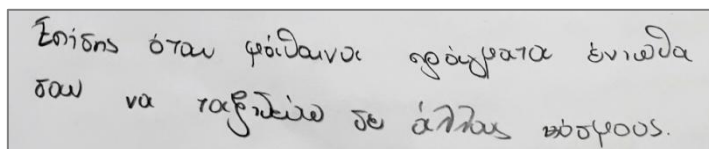 Επίσης όταν μάθαινα πράγματα ένιωθα
σαν να ταξιδεύω σε άλλους κόσμους.